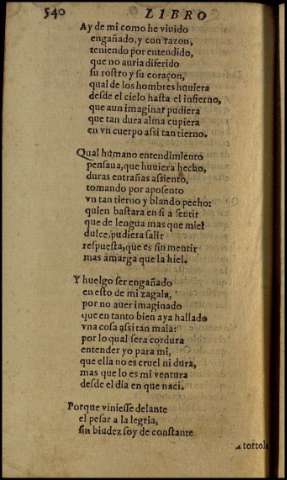 540
LIBRO
Ay de mi como he viuido
engañado, y con razon,
teniendo por entendido,
que no auria diferido
su rostro y su coraçon,
qual de los hombres huuiera
desde el cielo hasta el infierno,
que aun imaginar pudiera
que tan dura alma cupiera
en vn cuerpo assi tan tierno.
Qual humano entendimiento
pensaua, que huuiera hecho,
duras entrañas assiento,
tomando por aposento
vn tan tierno y blando pecho:
quien bastara en si a sentir
que de lengua mas que miel
dulce, pudiera salir
respuesta, que es sin mentir
mas amarga que la hiel.
Y huelgo ser engañado
en esto de mi zagala,
por no auer imaginado
que en tanto bien aya hallado
vna cosa assi tan mala:
por lo qual sera cordura
entender yo para mi,
que ella no es cruel ni dura,
mas que lo es mi ventura
desde el dia en que naci.
Porque viniesse delante
el pesar a la legria,
sin biudez soy de constante
a tortol